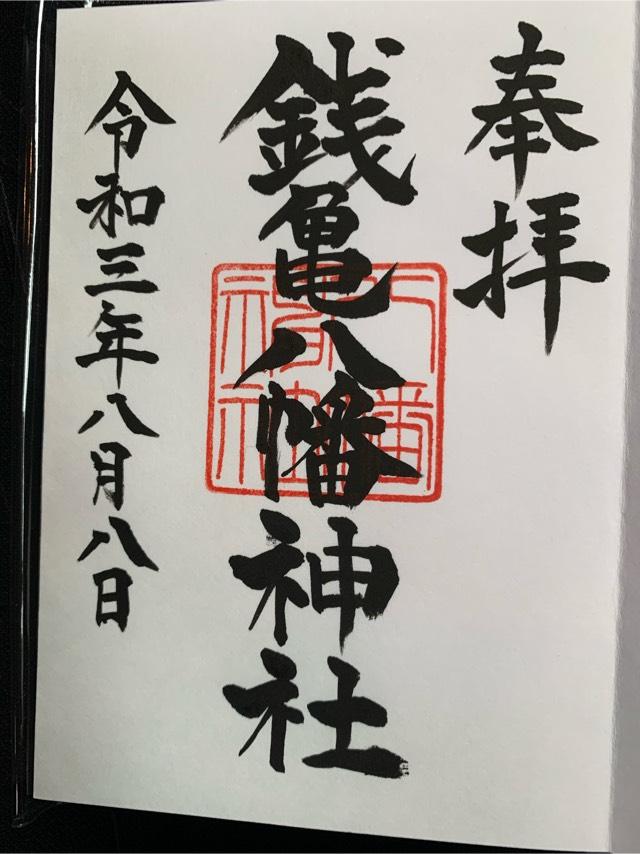 奉拝
銭亀八幡神社
令和三年八月八日